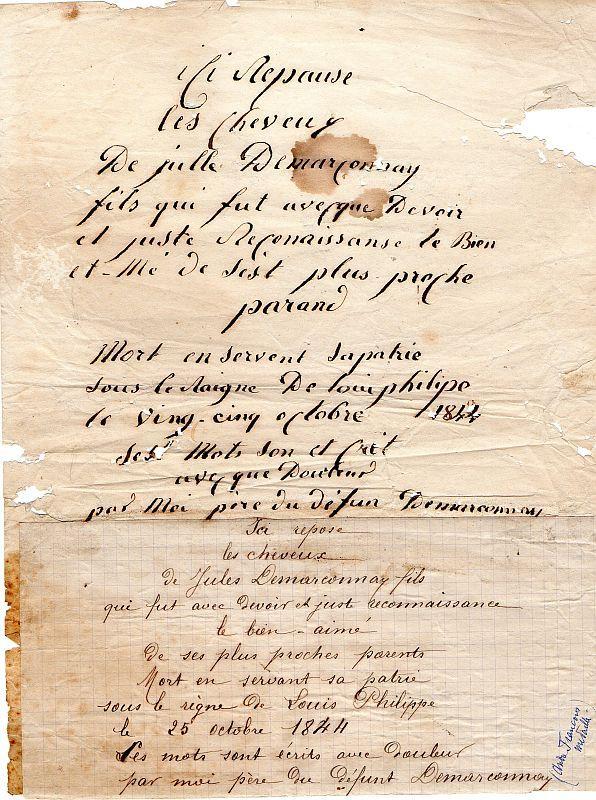 ici Repause
les cheveux
De julle Demarconnay
fils qui fut avecque Devoir
et juste Reconaissanse le Bien
et-Mé de sest plus proche
parand
Mort enservent sapatrie
sous le Raigne De louiphilipe
le Ving-cinq octobre 1844
ses Mots son et Crit
avecque Douleur
par Moi père du défun Demarconnay
Ici repose
les cheveux
de Jules Demarconnay fils
qui fut avec devoir et juste reconnaissance
le bien-aimé
De ses plus proches parents
Mort en servant sa patrie
sous le règne de Louis Philippe
le 25 octobre 1844
Ses mots sont écrits avec douleur
par moi père du défunt Demarconnay
François